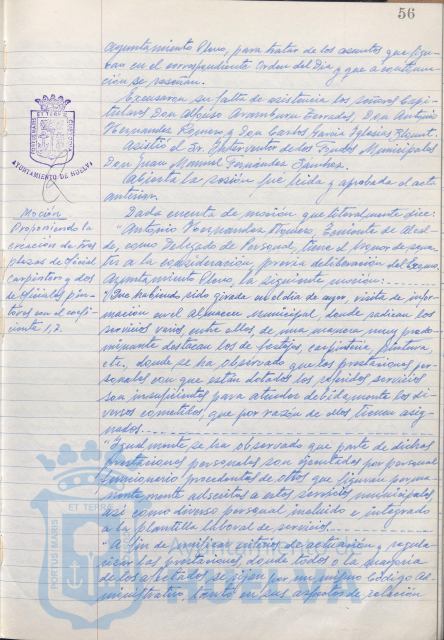 56
Ayuntamiento Pleno, para tratar de los asuntos que figu-
ran en el correspondiente Orden del Dia y que a continua-
ción se reseñan.
Excusaron su falta de asistencia los señores Capi-
tulares Don Alfonso Aramburu Terrades, Don Antonio
Hernandez Roquero y Don Carlos Garcia Iglesias
Asistió el Sr. Interventor de los Fondos Municipales
Don Juan Manuel Fernández Sanchez.
Abierta la sesión fué leida y aprobada el acta
anterior.
AYUNTAMIENTO DE HUELVA
Moción
Proponiendo la
creación de tres
plazas de Oficial
carpintero y dos
de Oficiales pin-
tores con el coefi-
ciente 1,7.
Dada cuenta de moción que literalmente dice:
"Antonio Hernandez Roquero, Teniente de Alcal-
de, como Delegado de Personal, tiene el honor de some-
ter a la consideración previa deliberación del Excmo.
Ayuntamiento Pleno, la siguiente moción:
"Que habiendo sido girada en el dia de ayer, visita de infor-
mación en el almacen municipal, donde radican los
servicios varios entre ellos de una manera muy predo-
minante destacan los de festejos, carpinteria, pintura,
etc., donde se ha observado que las prestaciones per-
sonales con que están dotados los referidos servicios
son insuficientes para atender debidamente los di-
versos cometidos, que por razón de ellos tienen asig-
nados.
"Igualmente se ha observado que parte de dichas
prestaciones personales son ejercitadas por personal
funcionario procedentes de otros que figuran perma-
nentemente adscritos a estos servicios municipales
asi como diverso personal incluido e integrado
a la plantilla laboral de servicios.
"A fin de unificar criterio de actuación, y regula-
rizar las prestaciones, donde todos o la mayoria
de los afectados se rijan por un mismo Código Ad-
ministrativo, tanto en sus aspectos de relación
PORTUS MARIS
ET TERRE
Ayuntamiento de
HUELVA